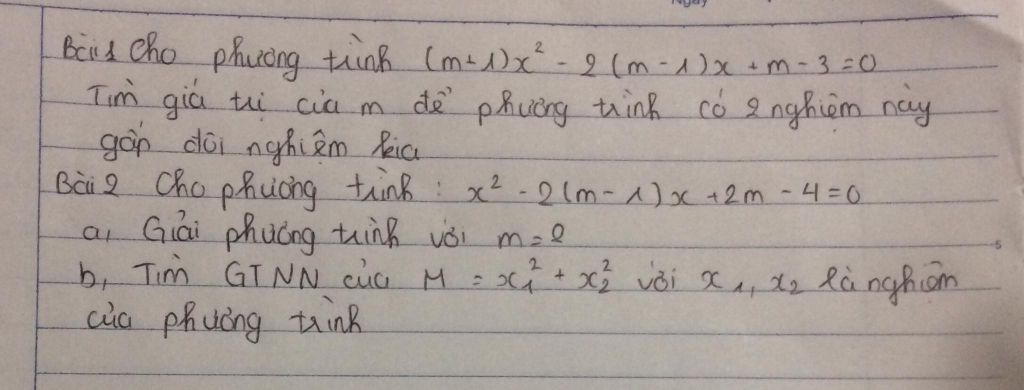 Ngày
Bài 1 Cho phương trình (m+1)x² - 2(m-1)x + m-3=0
Tìm giá trị của m để phương trình có 2 nghiệm này
gấp đôi nghiệm kia
Bài 2 Cho phương trình : x² - 2(m-1)x +2m - 4=0
a, Giải phương trình với m=2
b, Tìm GTNN của M = x₁² + x₂² với x₁, x₂ là nghiệm
của phương trình
5